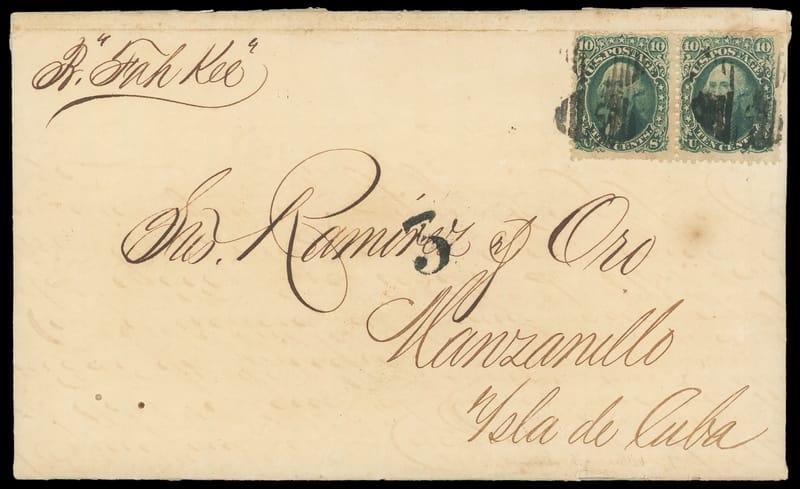 B. "Fah Kee"
10 U.S. POSTAGE 10
TEN CENTS.
U. S.
10 U.S. POSTAGE 10
TEN CENTS.
U. S.
Sres. Ramirez y Oro
5
Manzanillo
Isla de Cuba